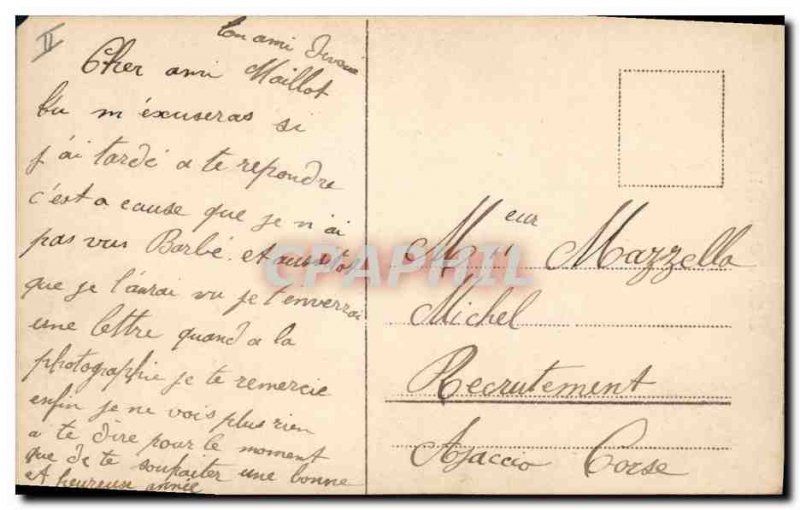 II
Ton ami
Cher ami Maillot
tu m'éxuseras si
j'ai tardé a te repondre
c'est a cause que je n'ai
pas vus Barbé. et aussitot
que je l'aurai vu je t'enverrai
une lettre quand a la
photographie je te remercie
enfin je ne vois plus rien
a te dire pour le moment
que de te souhaiter une bonne
et heureuse année
CPRPHIL
Meur Mazzella
Michel
Recrutement
Ajaccio Corse